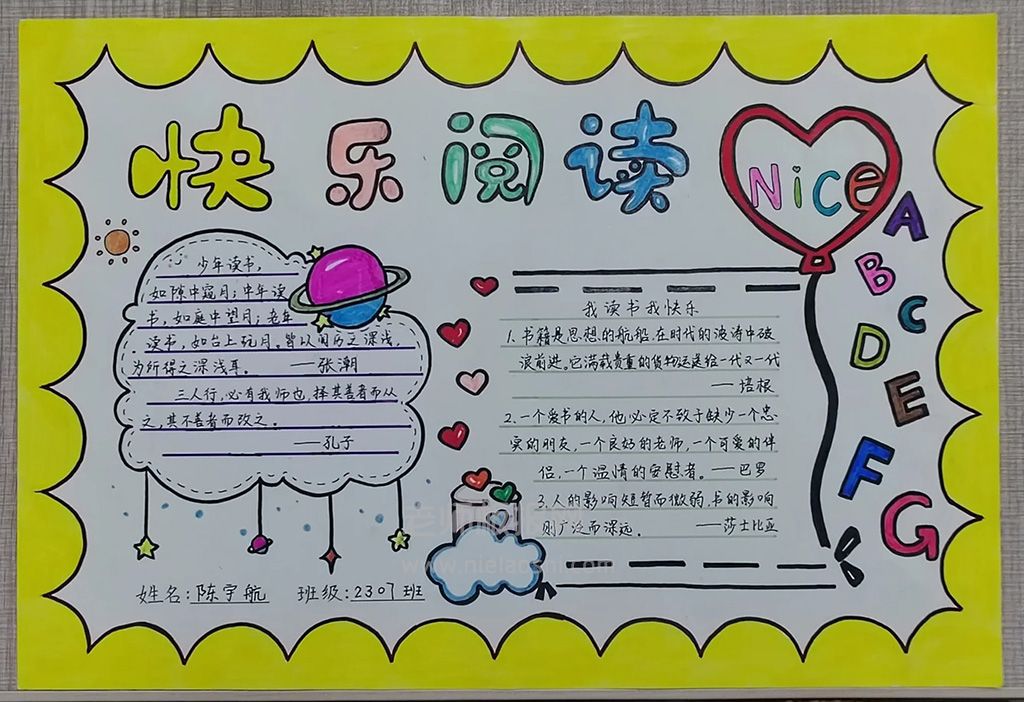 快乐阅读
Nice
A
B
C
D
E
F
G
少年读书,
如隙中窥月;中年读
书,如庭中望月;老年
读书,如台上玩月。皆以阅历之深浅,
为所得之深浅耳。 ——张潮
三人行,必有我师也,择其善者而从
之,其不善者而改之。
——孔子
我读书我快乐
1.书籍是思想的航船,在时代的波涛中破
浪前进。它满载贵重的货物运送给一代又一代
——培根
2.一个爱书的人,他必定不致于缺少一个忠
实的朋友,一个良好的老师,一个可爱的伴
侣,一个温情的安慰者。——巴罗
3.人的影响短暂而微弱,书的影响
则广泛而深远。 ——莎士比亚
姓名:陈宇航 班级:2307班